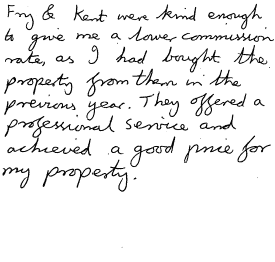 Fry & Kent were kind enough
to give me a lower commission
rate, as I had bought the
property from them in the
previous year. They offered a
professional service and
achieved a good price for
my property.